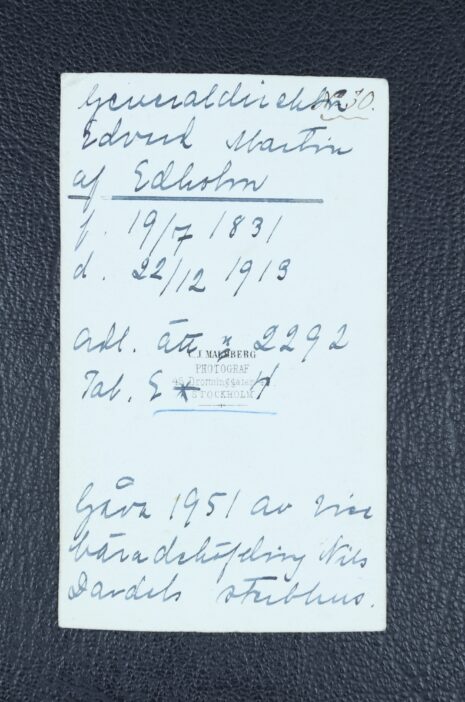 Generaldirektören
No 30.
Edvard Martin
af Edholm
f. 19/7 1831
d. 22/12 1913
Adl. ätt n 2292
C. J. MALMBERG
PHOTOGRAF
Tab. 11
STOCKHOLM
Gåva 1951 av vice
häradshöfding Nils
Dardels sterbhus.